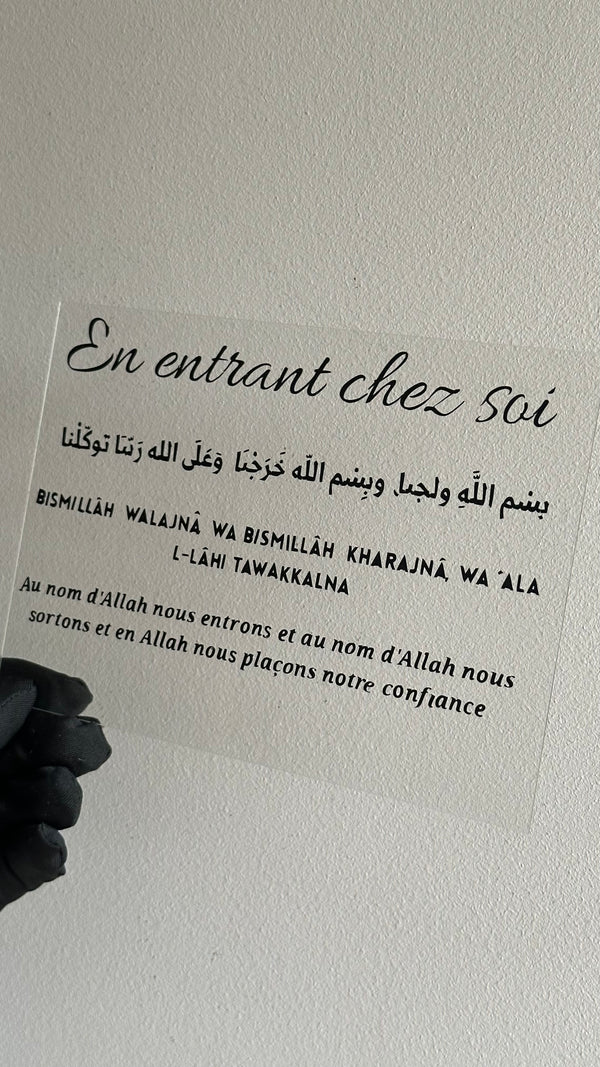 En entrant chez soi
بِسْمِ اللَّهِ ولجنا، وبِسْمِ اللَّه خَرَجْنَا وَعَلَى الله رَبّنَا توكّلْنا
BISMILLÂH WALAJNÂ WA BISMILLÂH KHARAJNÂ, WA 'ALA
L-LÂHI TAWAKKALNA
Au nom d'Allah nous entrons et au nom d'Allah nous
sortons et en Allah nous plaçons notre confiance